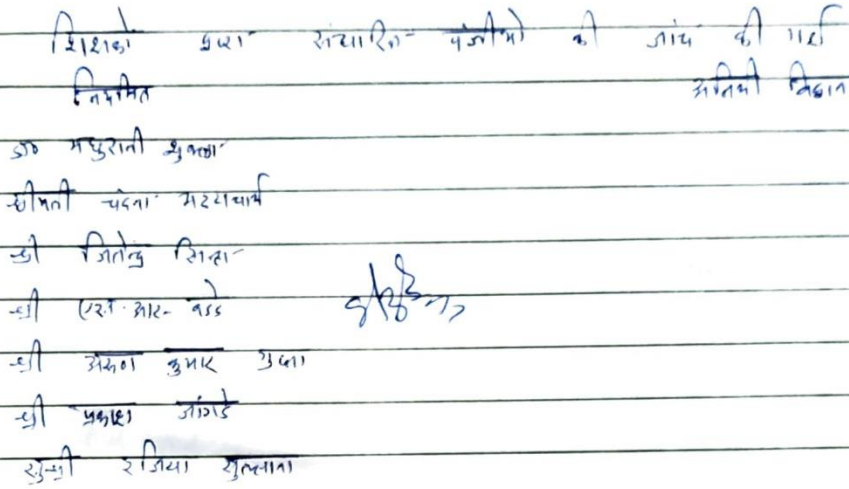 शिक्षको द्वारा संधारित पंजीयो की जांच की गई
नियमित अतिथी विद्वान
डॉ० मधुरानी शुक्ला
श्रीमती चंदना भटटाचार्य
श्री जितेन्द्र सिन्हा
श्री एस. आर. वडडे
श्री अरूण कुमार गुप्ता
श्री प्रकाश जांगडे
सुश्री रजिया सुल्ताना